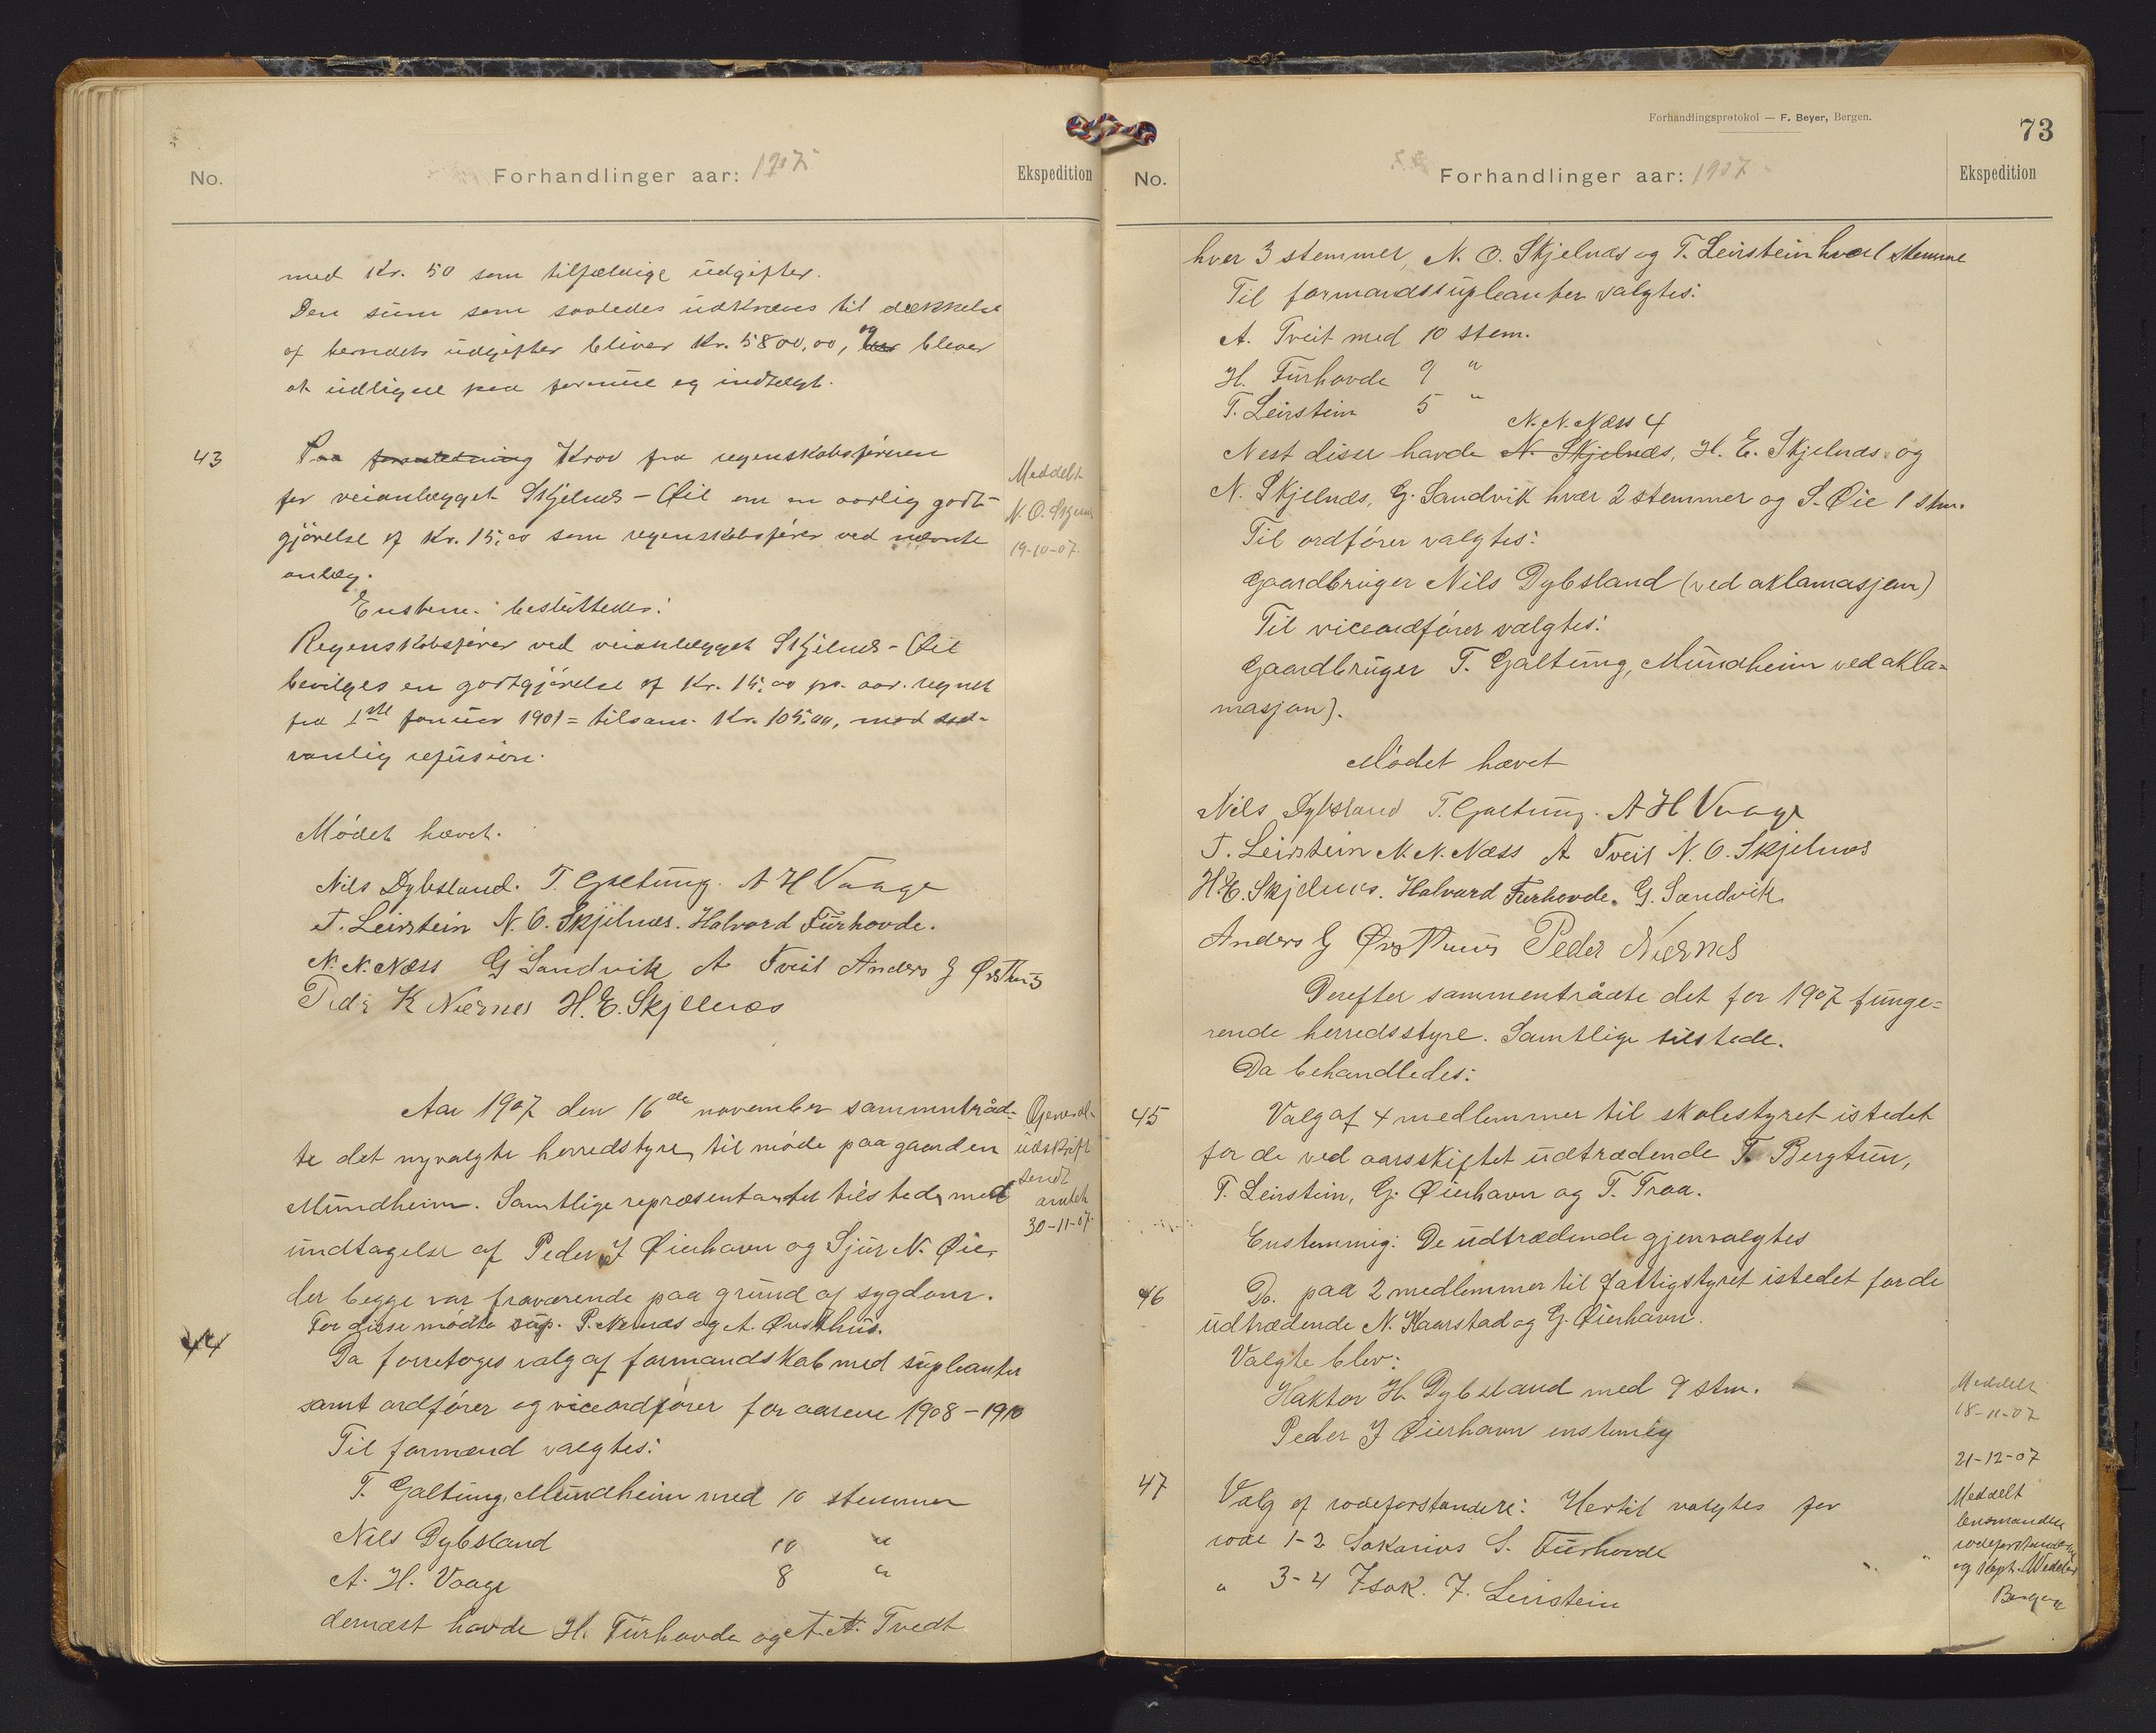 No.
Forhandlinger aar: 1907
Ekspedition
med Kr. 50 som tilfældige udgifter.
Den sum som saaledes udkræves til dækkelse
af herredets udgifter bliver Kr. 5800,00, og bliver
at udligne paa formue og indtægt.
43
Paa foranledning Krav fra regenskabsføreren
for veianlægget Skjelnæs - Øie om en aarlig godt-
gjørelse af Kr. 15,00 som regenskabsfører ved nævnte
anlæg.
Enstem. besluttedes:
Regenskabsfører ved veianlægget Skjelnæs - Øie
bevilges en godtgjørelse af Kr. 15,00 pr. aar. regnet
fra 1ste januar 1901 = tilsam. Kr. 105,00, mod sed-
vanlig refusion.
Meddelt
N. O. Skjelnæs
19-10-07.
Mødet hævet.
Nils Dybsland. T. Galtung. A H Vaage
T. Leirstein N. O. Skjelnæs. Halvard Furhovde.
N. N. Næss G Sandvik A Tveit Anders G Østhus
Peder K Nernes H. E. Skjelnæs
Aar 1907 den 16de november sammentråd-
te det nyvalgte herredstyre, til møde paa gaarden
Mundheim. Samtlige repræsentanter tilstede, med
undtagelse af Peder J Øierhavn og Sjur N. Øie,
der begge var fraværende paa grund af sygdom.
For disse mødte sup. P. Nernæs og A. Østhus.
General-
udskrift
sendt
amtet
30-11-07.
44
Da foretoges valg af formandskab med supleanter
samt ordfører og viceordfører for aarene 1908 - 1910
Til formænd valgtes:
T. Galtung, Mundheim med 10 stemmer
Nils Dybsland 10 "
A. H. Vaage 8 "
dernæst havde H. Furhovde og A. Tvedt
Forhandlingsprotokol — F. Beyer, Bergen.
73
No.
Forhandlinger aar: 1907
Ekspedition
hver 3 stemmer, N. O. Skjelnæs og T. Leirstein hver 1 stemme
Til formandssupleanter valgtes:
A. Tveit med 10 stem.
H. Furhovde 9 "
T. Leirstein 5 "
N. N. Næss 4
Nest disse havde N. Skjelnæs, H. E. Skjelnæs og
N. Skjelnæs, G. Sandvik hver 2 stemmer og S. Øie 1 stm.
Til ordfører valgtes:
Gaardbruger Nils Dybsland (ved aklamasjon)
Til viceordfører valgtes:
Gaardbruger T. Galtung, Mundheim ved akla-
masjon).
Mødet hævet
Nils Dybsland T. Galtung. A H Vaage
T. Leirstein N. N. Næss A Tveit N. O. Skjelnæs
H. E. Skjelnæs. Halvard Furhovde. G. Sandvik
Anders G Østhus Peder Nernes
Derefter sammentrådte det for 1907 funge-
rende herredsstyre. Samtlige tilstede.
Da behandledes:
45
Valg af 4 medlemmer til skolestyret istedet
for de ved aarsskiftet udtrædende T. Bergtun,
T. Leirstein, G. Øierhavn og T. Traa.
Enstemmig: De udtrædende gjenvalgtes
46
Do. paa 2 medlemmer til fattigstyret istedet for de
udtrædende N. Kaarstad og G. Øierhavn.
Valgte blev:
Haktor H. Dybsland med 9 stm.
Peder J Øierhavn enstemig
Meddelt
18-11-07
47
Valg af rodeforstandere: Hertil valgtes for
rode 1-2 Sakarias S. Furhovde
" 3-4 Isak. J. Leirstein
21-12-07
Meddelt
lensmanden
rodeforstanderne
og kapt. Wedeler
Bergen